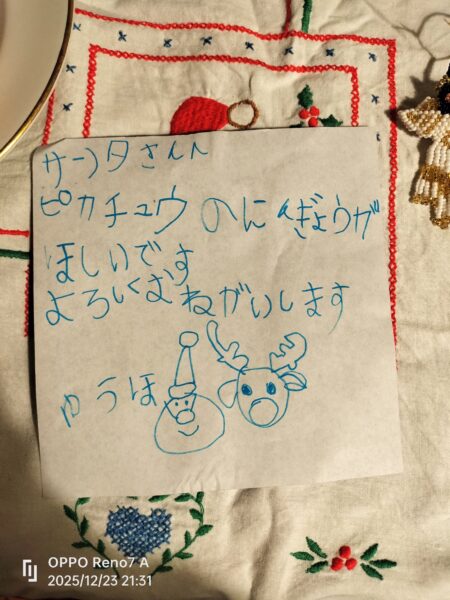 サンタさんへ
ピカチュウのにんぎょうが
ほしいです
よろしくおねがいします
ゆうほ
OPPO Reno7 A
2025/12/23 21:31